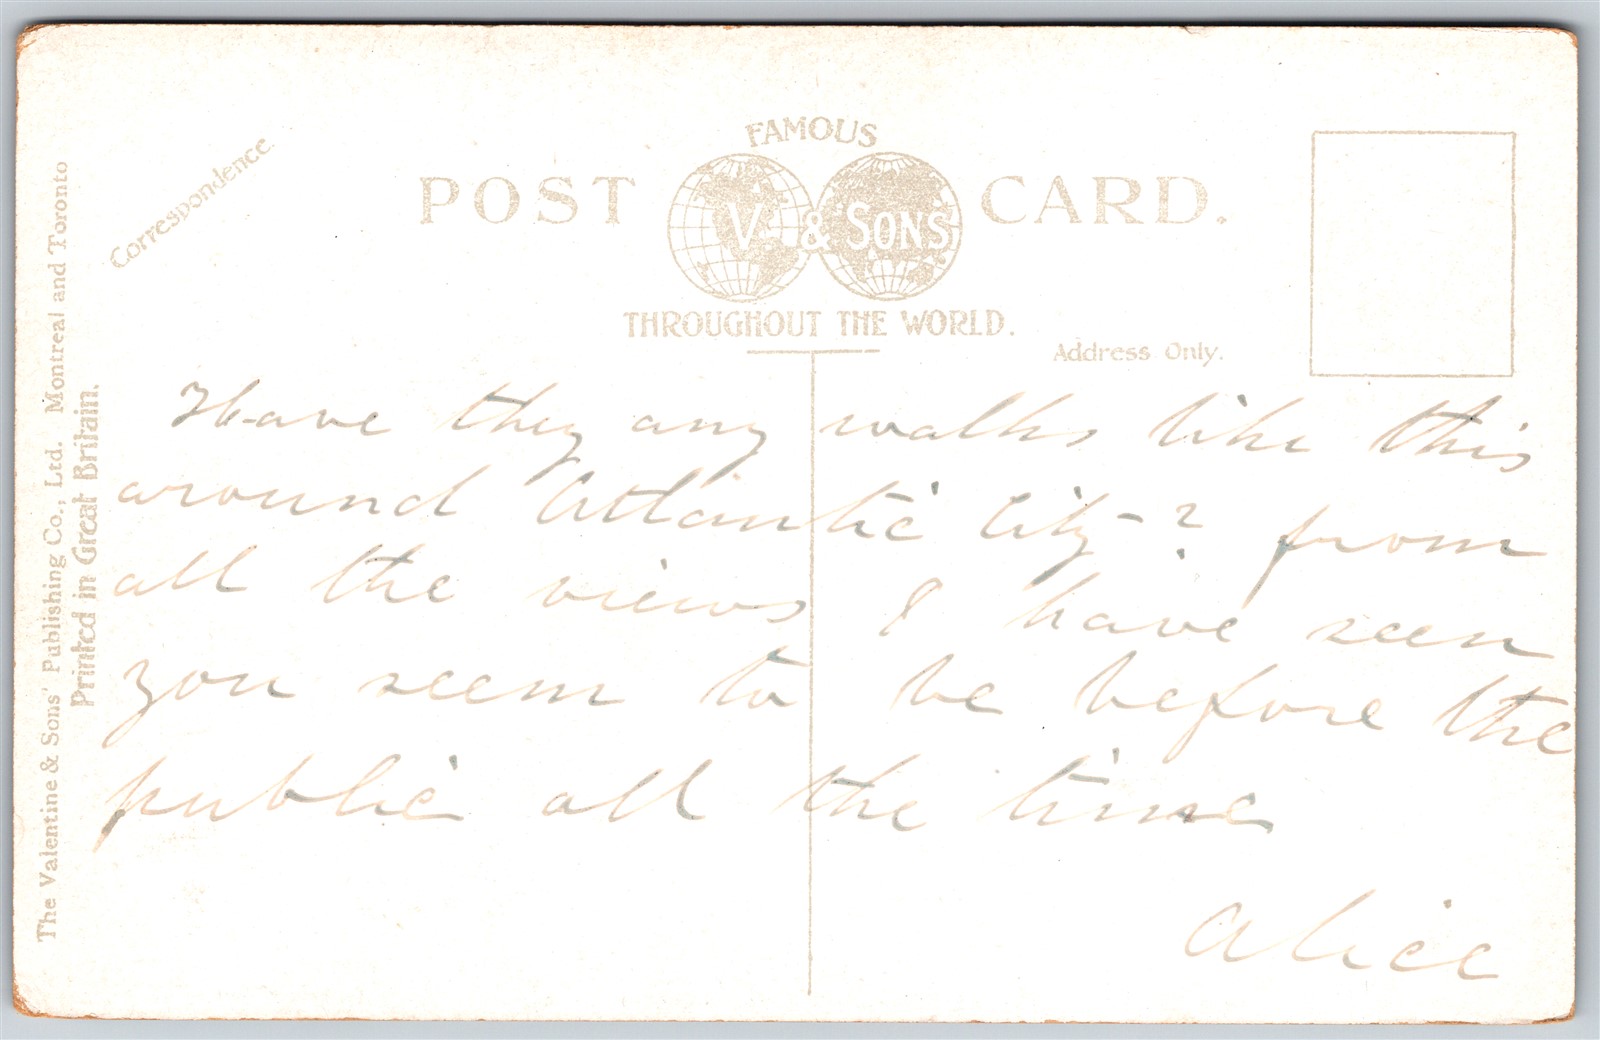 Correspondence.
FAMOUS
POST V. & SONS CARD.
THROUGHOUT THE WORLD.
Address Only.
The Valentine & Sons' Publishing Co., Ltd. Montreal and Toronto
Printed in Great Britain.
Have they any walks like this
around Atlantic City-? from
all the views I have seen
you seem to be before the
public all the time
Alice